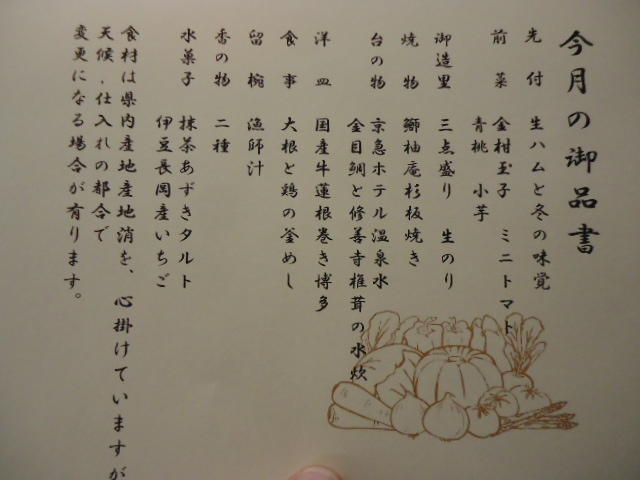 今月の御品書
先付 生ハムと冬の味覚
前菜 金村玉子 ミニトマト
青桃 小芋
御造里 三点盛り 生のり
焼物 鰤柚庵杉板焼き
台の物 京急ホテル温泉水
金目鯛と修善寺椎茸の水炊
洋皿 国産牛蓮根巻き博多
食事 大根と鶏の釜めし
留椀 漁師汁
香の物 二種
水菓子 抹茶あずきタルト
伊豆長岡産いちご
食材は県内産地産地消を、心掛けていますが
天候、仕入れの都合で
変更になる場合が有ります。